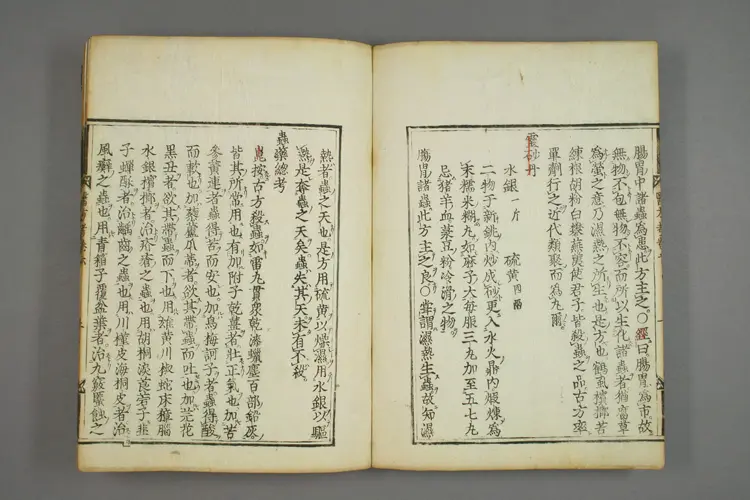 腸胃中諸蟲為患此方主之〇經曰腸胃為市故
無物不包無物不容而所以生化諸蟲者猶腐草
為螢之意乃濕熱之所生也是方也鶴虱檳榔苦
練根胡粉白礬蕪荑使君子皆殺蟲之品古方率
單劑行之近代類聚而為丸爾
靈砂丹
水銀一斤 硫黄四兩
二物于新銚內炒成砂更入水火鼎內煅煉為
末糯米糊丸如麻子大每服三丸加至五七丸
忌猪羊血菉豆粉冷滑之物
腸胃諸蟲此方主之良〇嘗謂濕熱生蟲故知濕
熱者蟲之天也是方用硫黄以燥濕用水銀以驅
熱是奪蟲之天矣蟲失其天未有不殺
蟲藥總考
崑按古方殺蟲如雷丸貫衆乾漆蠟塵百部鉛灰
皆其所常用也有加附子乾薑者壯正氣也加苦
參黄連者蟲得苦而安也加烏梅訶子者蟲得酸
而軟也加藜蘆瓜蒂者欲其帶蟲而吐也加芫花
黑丑者欲其帶蟲而下也用雄黄川椒蛇床樟腦
水銀檳榔者治疥瘡之蟲也用胡桐淚莨菪子韭
子蟾酥者治齲齒之蟲也用川槿皮海桐皮者治
風癬之蟲也用青葙子覆盆葉者治九竅䘌蝕之